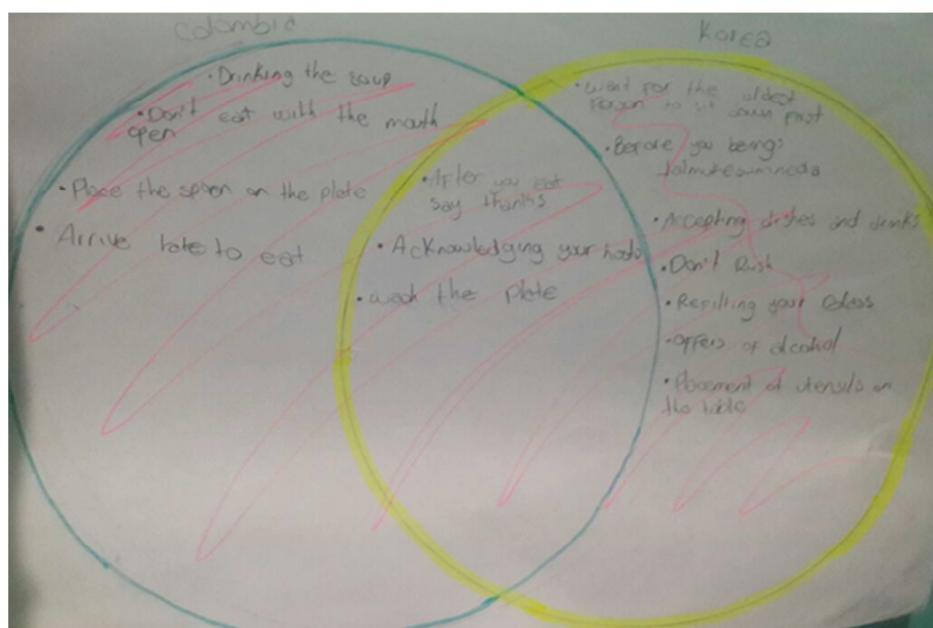 Colombia
Korea
• Drinking the soup
• Don't eat with the mouth
open
• Place the spoon on the plate
• Arrive late to eat
• After you eat
say thanks
• Acknowledging your hosts
• wash the plate
• wait for the oldest
Person to sit down first
• Before you being:
• Accepting dishes and drinks
• Don't Rush
• Refilling your Glass
• offers of alcohol
• Placement of utensils on
the table